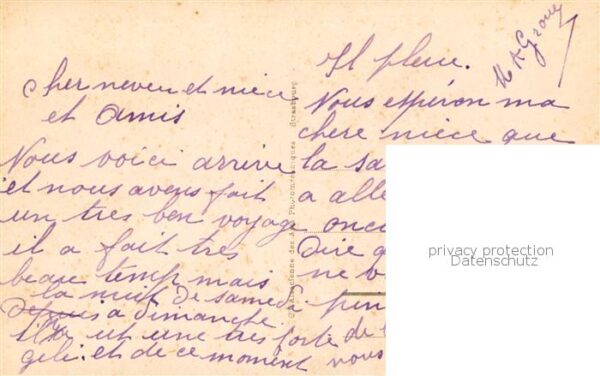 cher neveu et niece
et amis
Nous voici arrive
et nous avons fait
un tres bon voyage
il a fait tres
beau temp mais
la nuit de samedi
a dimanche.
il ut une tres forte
gelé. et de ce moment nous
Il pleur.
Nous esperon ma
chere niece que
la sa
a alle
oncl
Dire q
ne v
de
privacy protection
Datenschutz